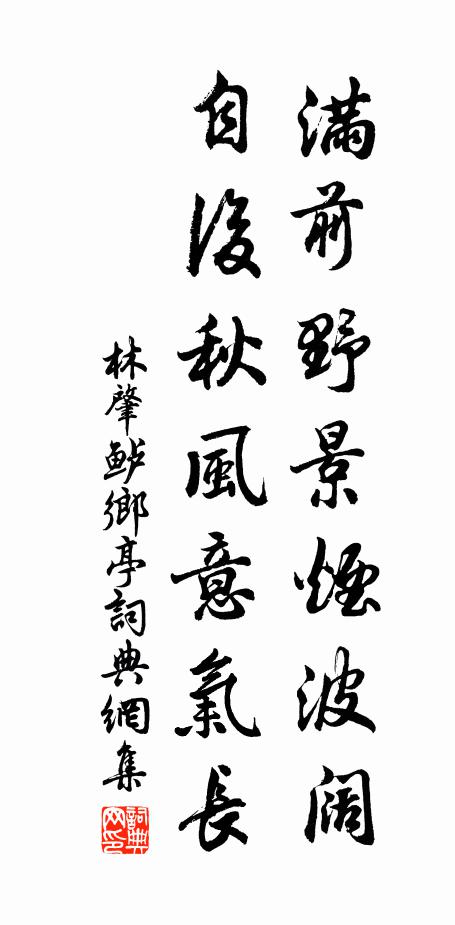 滿前野景煙波阔
自後秋風意氣長
林肇鲈鄉亭詞典網集
詞典网印